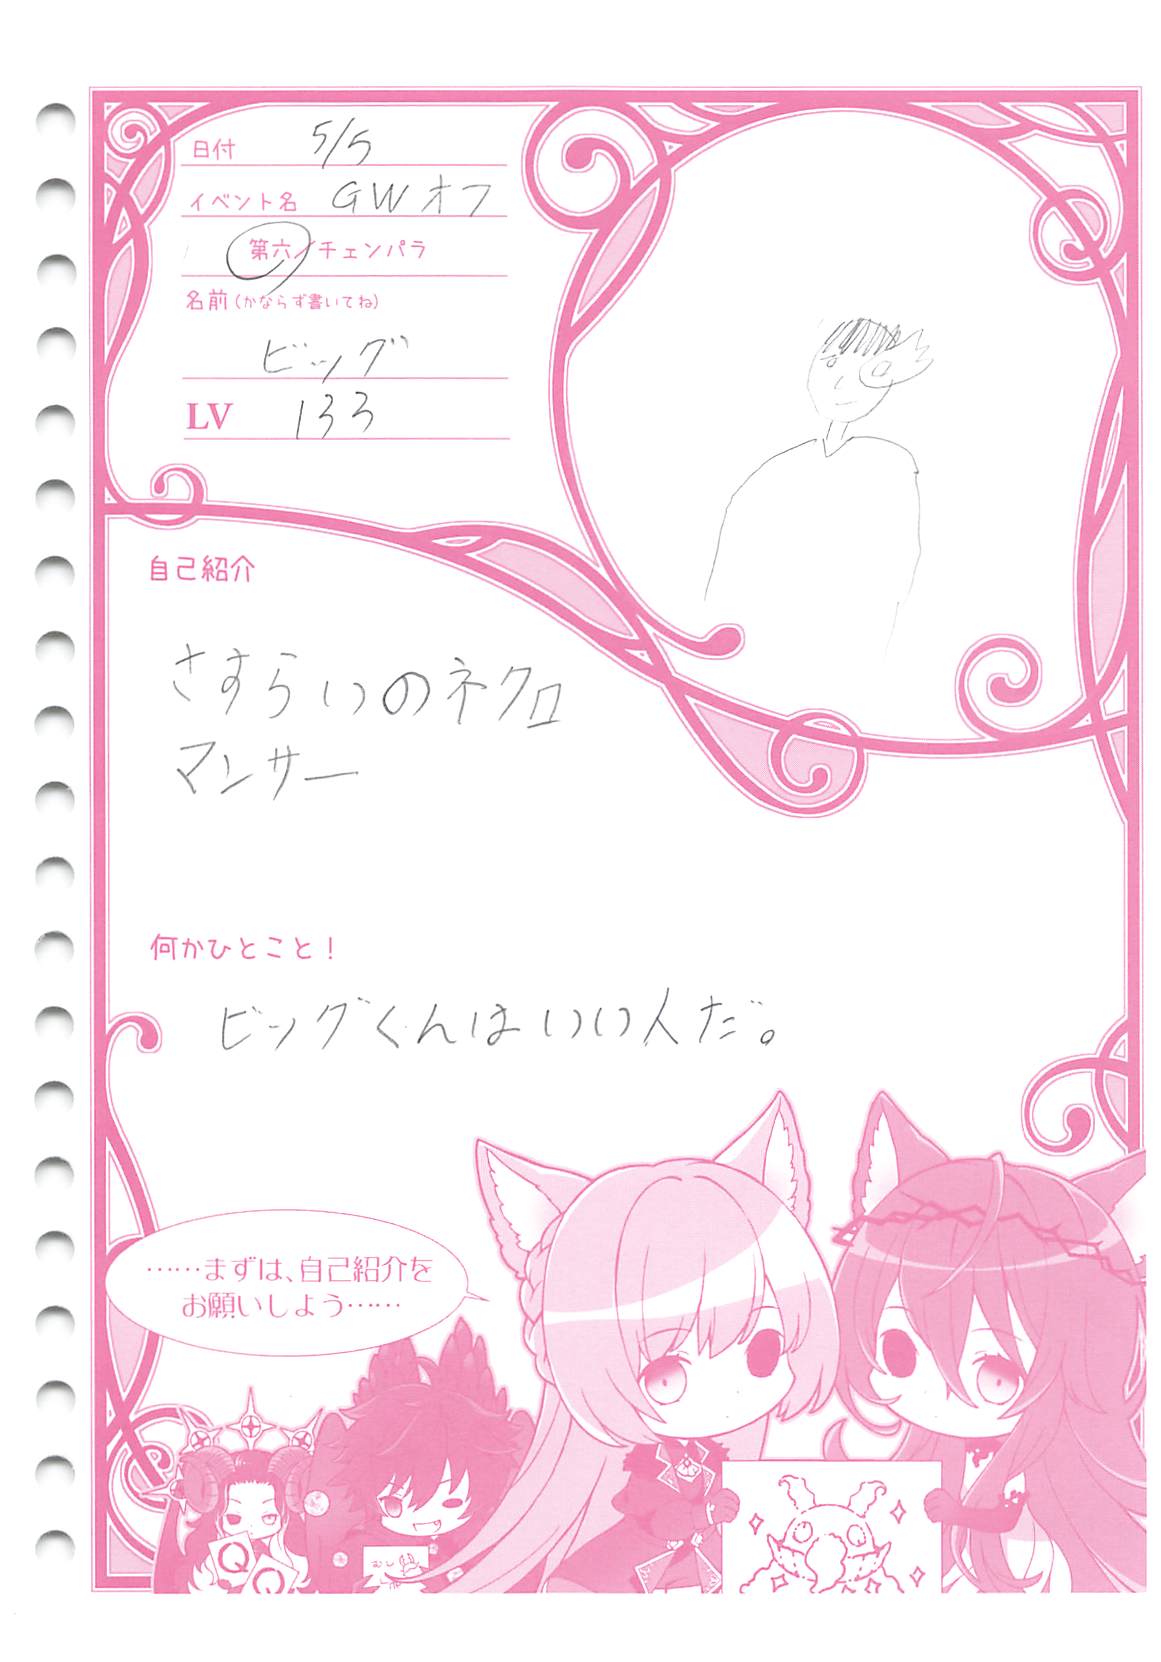 日付 5/5
イベント名 GWオフ
第六／チェンパラ
名前(かならず書いてね)
ビッグ
LV 133
自己紹介
さすらいのネクロ
マンサー
何かひとこと！
ビッグくんはいい人だ。
……まずは、自己紹介を
お願いしよう……
Q Q